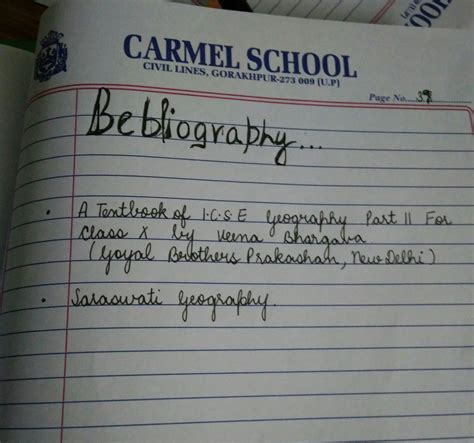 CARMEL SCHOOL
CIVIL LINES, GORAKHPUR-273 009 (U.P)
Page No. 38
Bebliography...
• A Textbook of I.C.S.E Geography Part II For
Class X by Veena Bhargava
(Goyal Brothers Prakashan, New Delhi)
• Saraswati Geography.